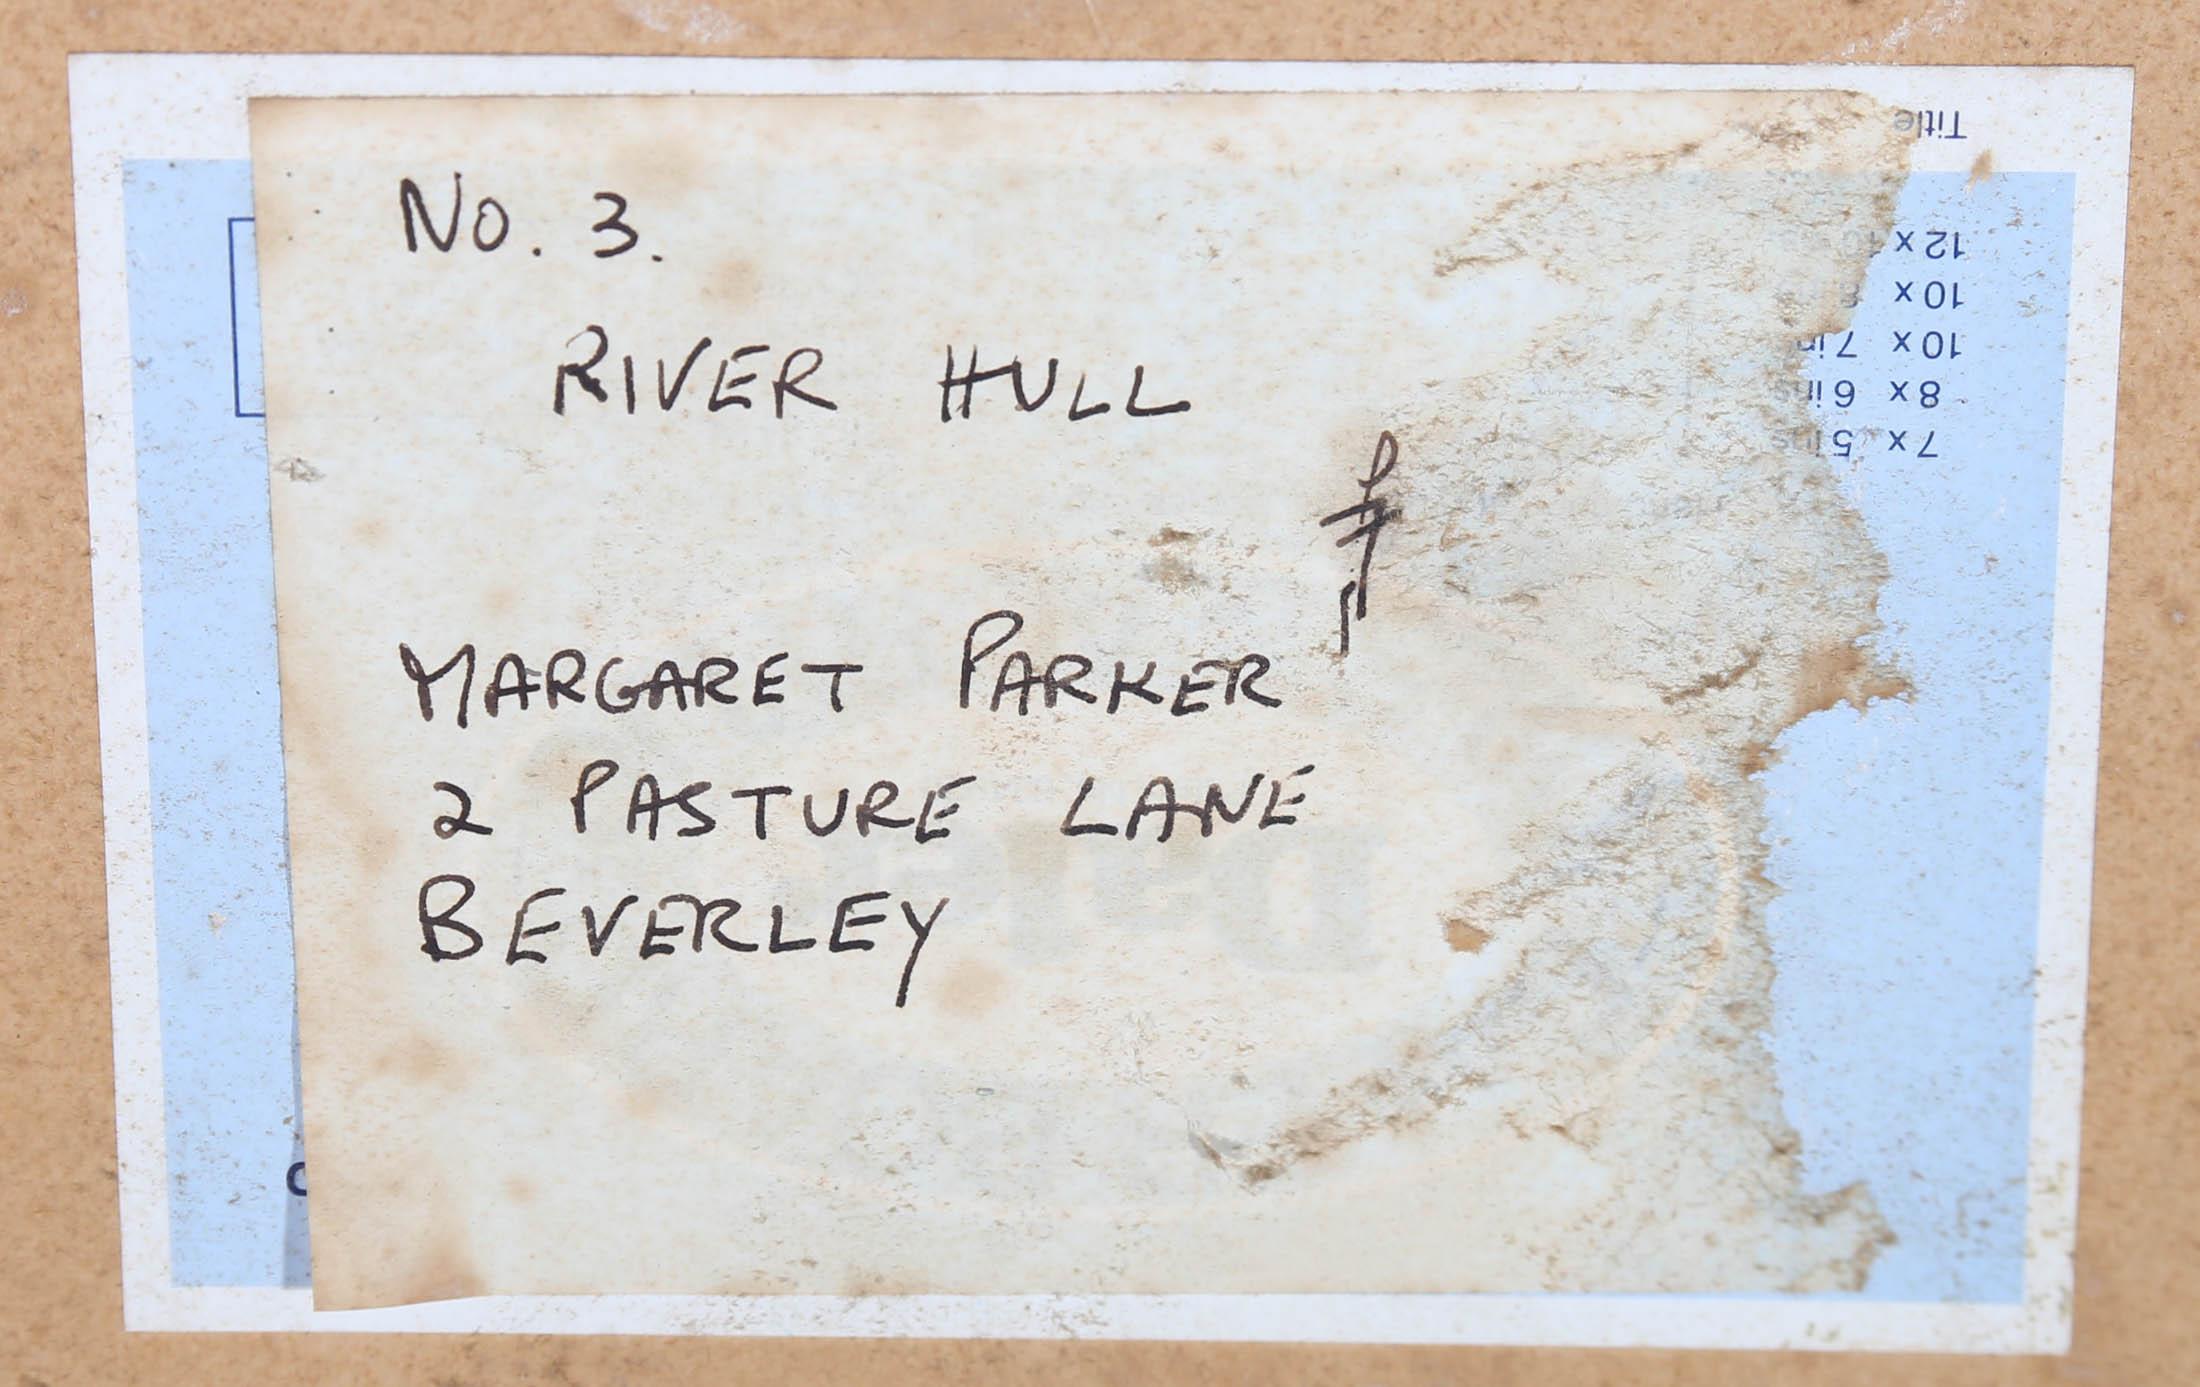 No. 3.
RIVER HULL
£
MARGARET PARKER
2 PASTURE LANE
BEVERLEY
Title
12 x
10 x
10 x 7in
8 x 6ins
7 x 5ins